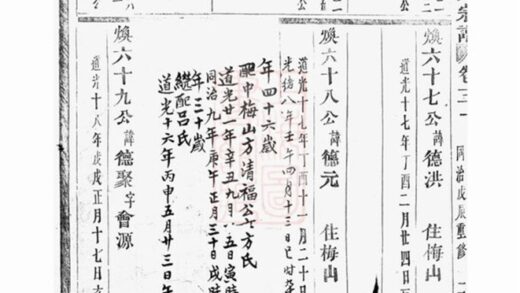 宗譜卷三一 同治戊辰重修
二
煥六十七公 諱德洪 住梅山
道光十七年丁酉二月廿四日
煥六十八公 諱德元 住梅山
道光十七年丁酉十一月二十日
光緒八年壬午四月十三日巳時卒
年四十六歲
配中梅山方清福公女方氏
道光廿一年辛丑九月 五日寅時
同治九年庚午正月三十日戌時
年三十歲
繼配呂氏
道光十六年丙申五月廿三日午
煥六十九公 諱德聚字會源
道光十八年戊戌正月十七日